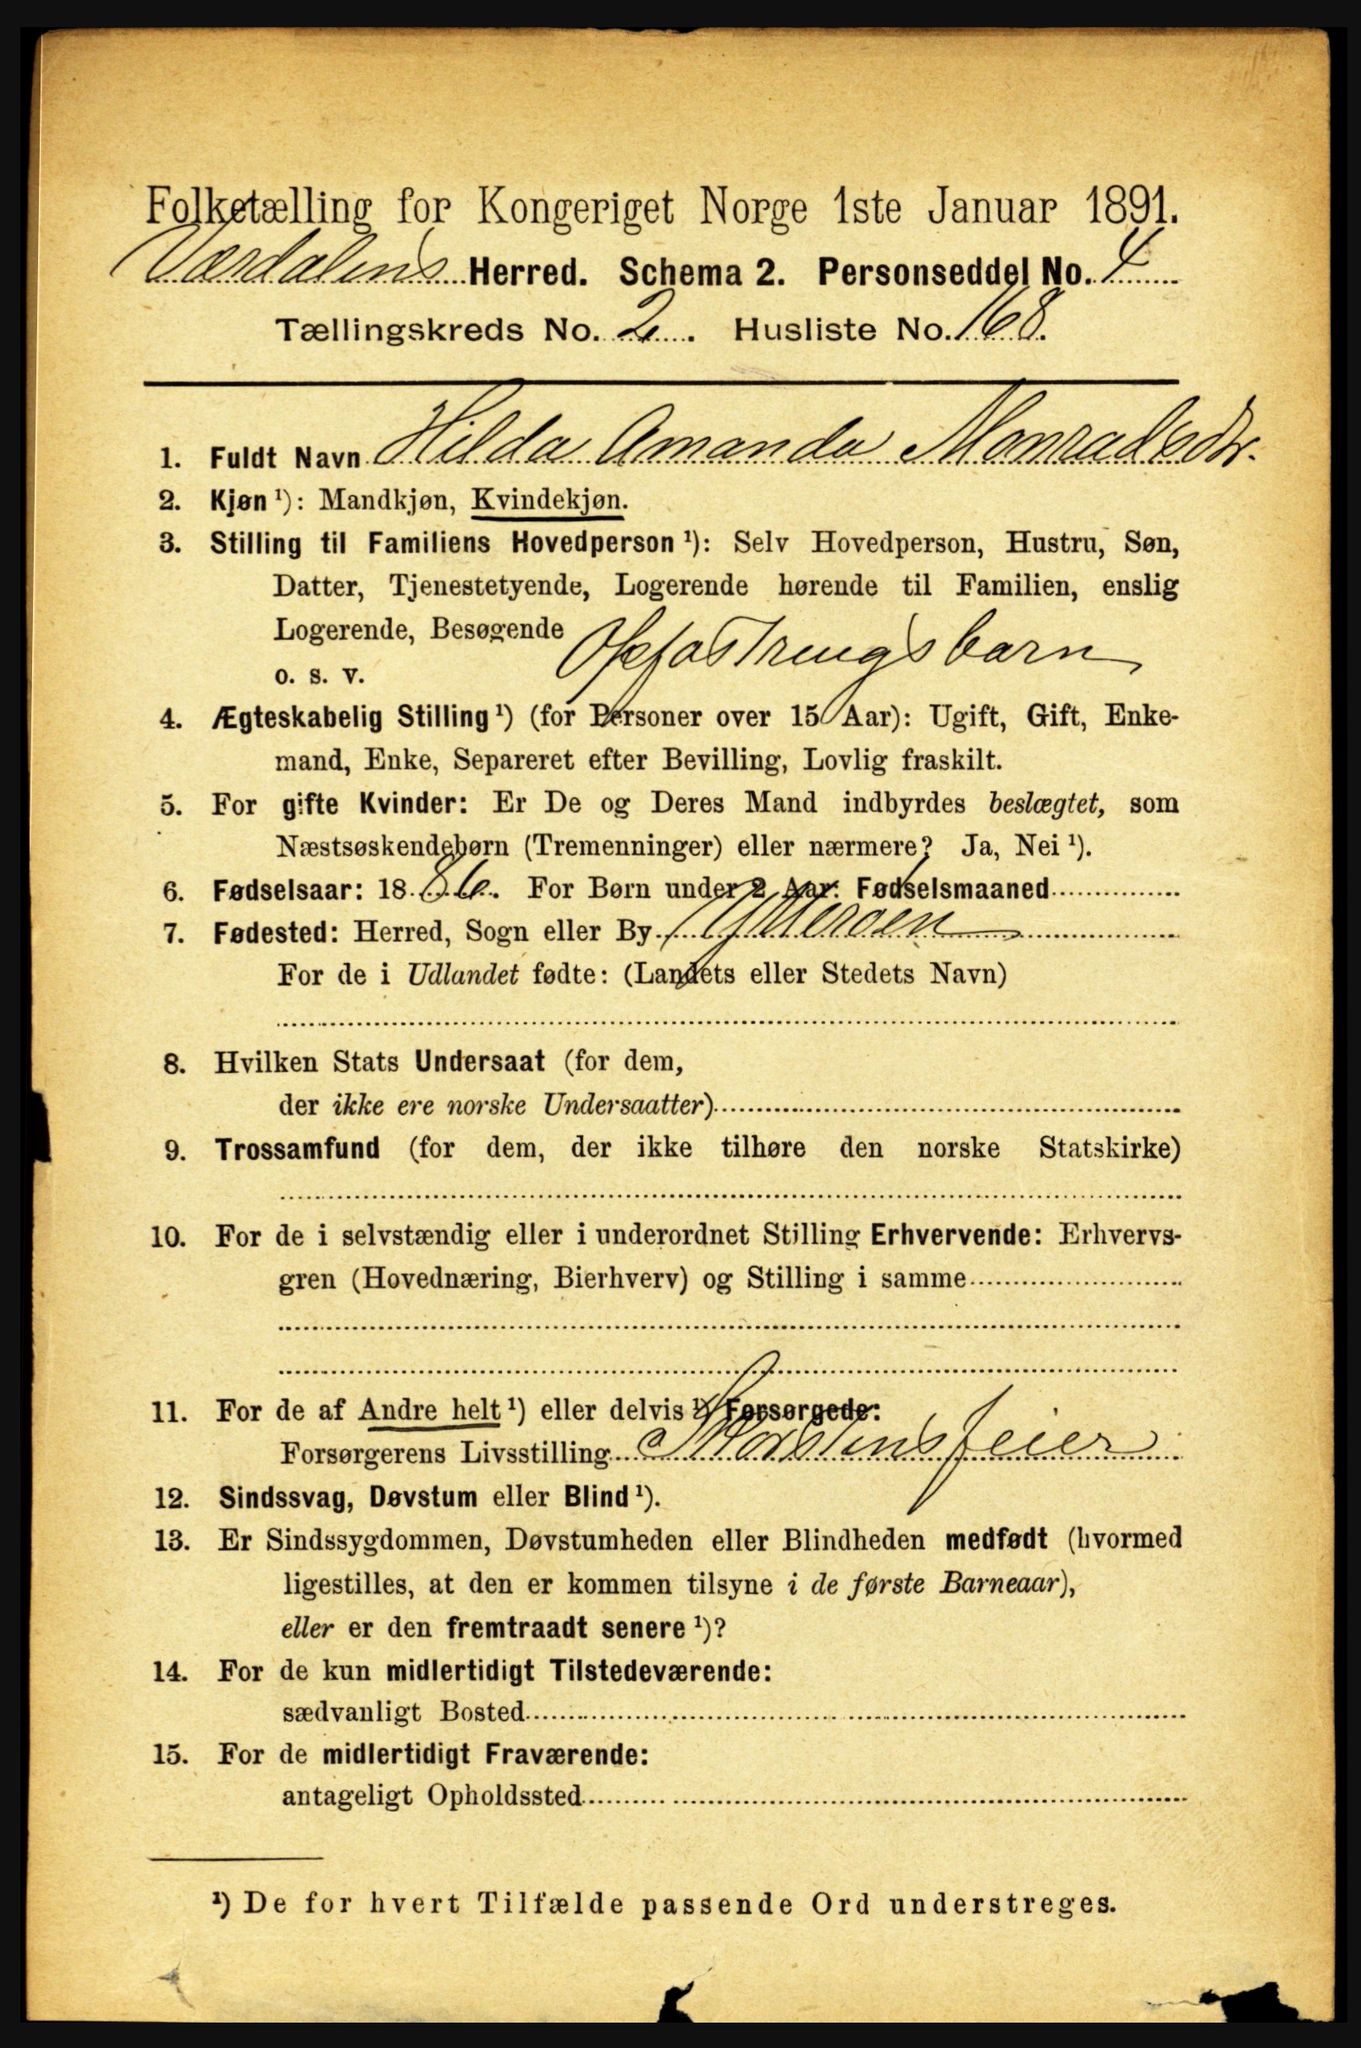 Folketælling for Kongeriget Norge 1ste Januar 1891.
Værdalens Herred. Schema 2. Personseddel No. 4
Tællingskreds No. 2. Husliste No. 168.
1. Fuldt Navn Hilda Amanda Monradsdtr.
2. Kjøn ¹): Mandkjøn, Kvindekjøn.
3. Stilling til Familiens Hovedperson ¹): Selv Hovedperson, Hustru, Søn,
Datter, Tjenestetyende, Logerende hørende til Familien, enslig
Logerende, Besøgende Opfostringsbarn
o. s. v.
4. Ægteskabelig Stilling ¹) (for Personer over 15 Aar): Ugift, Gift, Enke-
mand, Enke, Separeret efter Bevilling, Lovlig fraskilt.
5. For gifte Kvinder: Er De og Deres Mand indbyrdes beslægtet, som
Næstsøskendebørn (Tremenninger) eller nærmere? Ja, Nei ¹).
6. Fødselsaar: 1886. For Børn under 2 Aar: Fødselsmaaned
7. Fødested: Herred, Sogn eller By Ytterøen
For de i Udlandet fødte: (Landets eller Stedets Navn)
8. Hvilken Stats Undersaat (for dem,
der ikke ere norske Undersaatter)
9. Trossamfund (for dem, der ikke tilhøre den norske Statskirke)
10. For de i selvstændig eller i underordnet Stilling Erhvervende: Erhvervs-
gren (Hovednæring, Bierhverv) og Stilling i samme
11. For de af Andre helt ¹) eller delvis ¹) Forsørgede:
Forsørgerens Livsstilling Skorstensfeier
12. Sindssvag, Døvstum eller Blind ¹).
13. Er Sindssygdommen, Døvstumheden eller Blindheden medfødt (hvormed
ligestilles, at den er kommen tilsyne i de første Barneaar),
eller er den fremtraadt senere ¹)?
14. For de kun midlertidigt Tilstedeværende:
sædvanligt Bosted
15. For de midlertidigt Fraværende:
antageligt Opholdssted
¹) De for hvert Tilfælde passende Ord understreges.